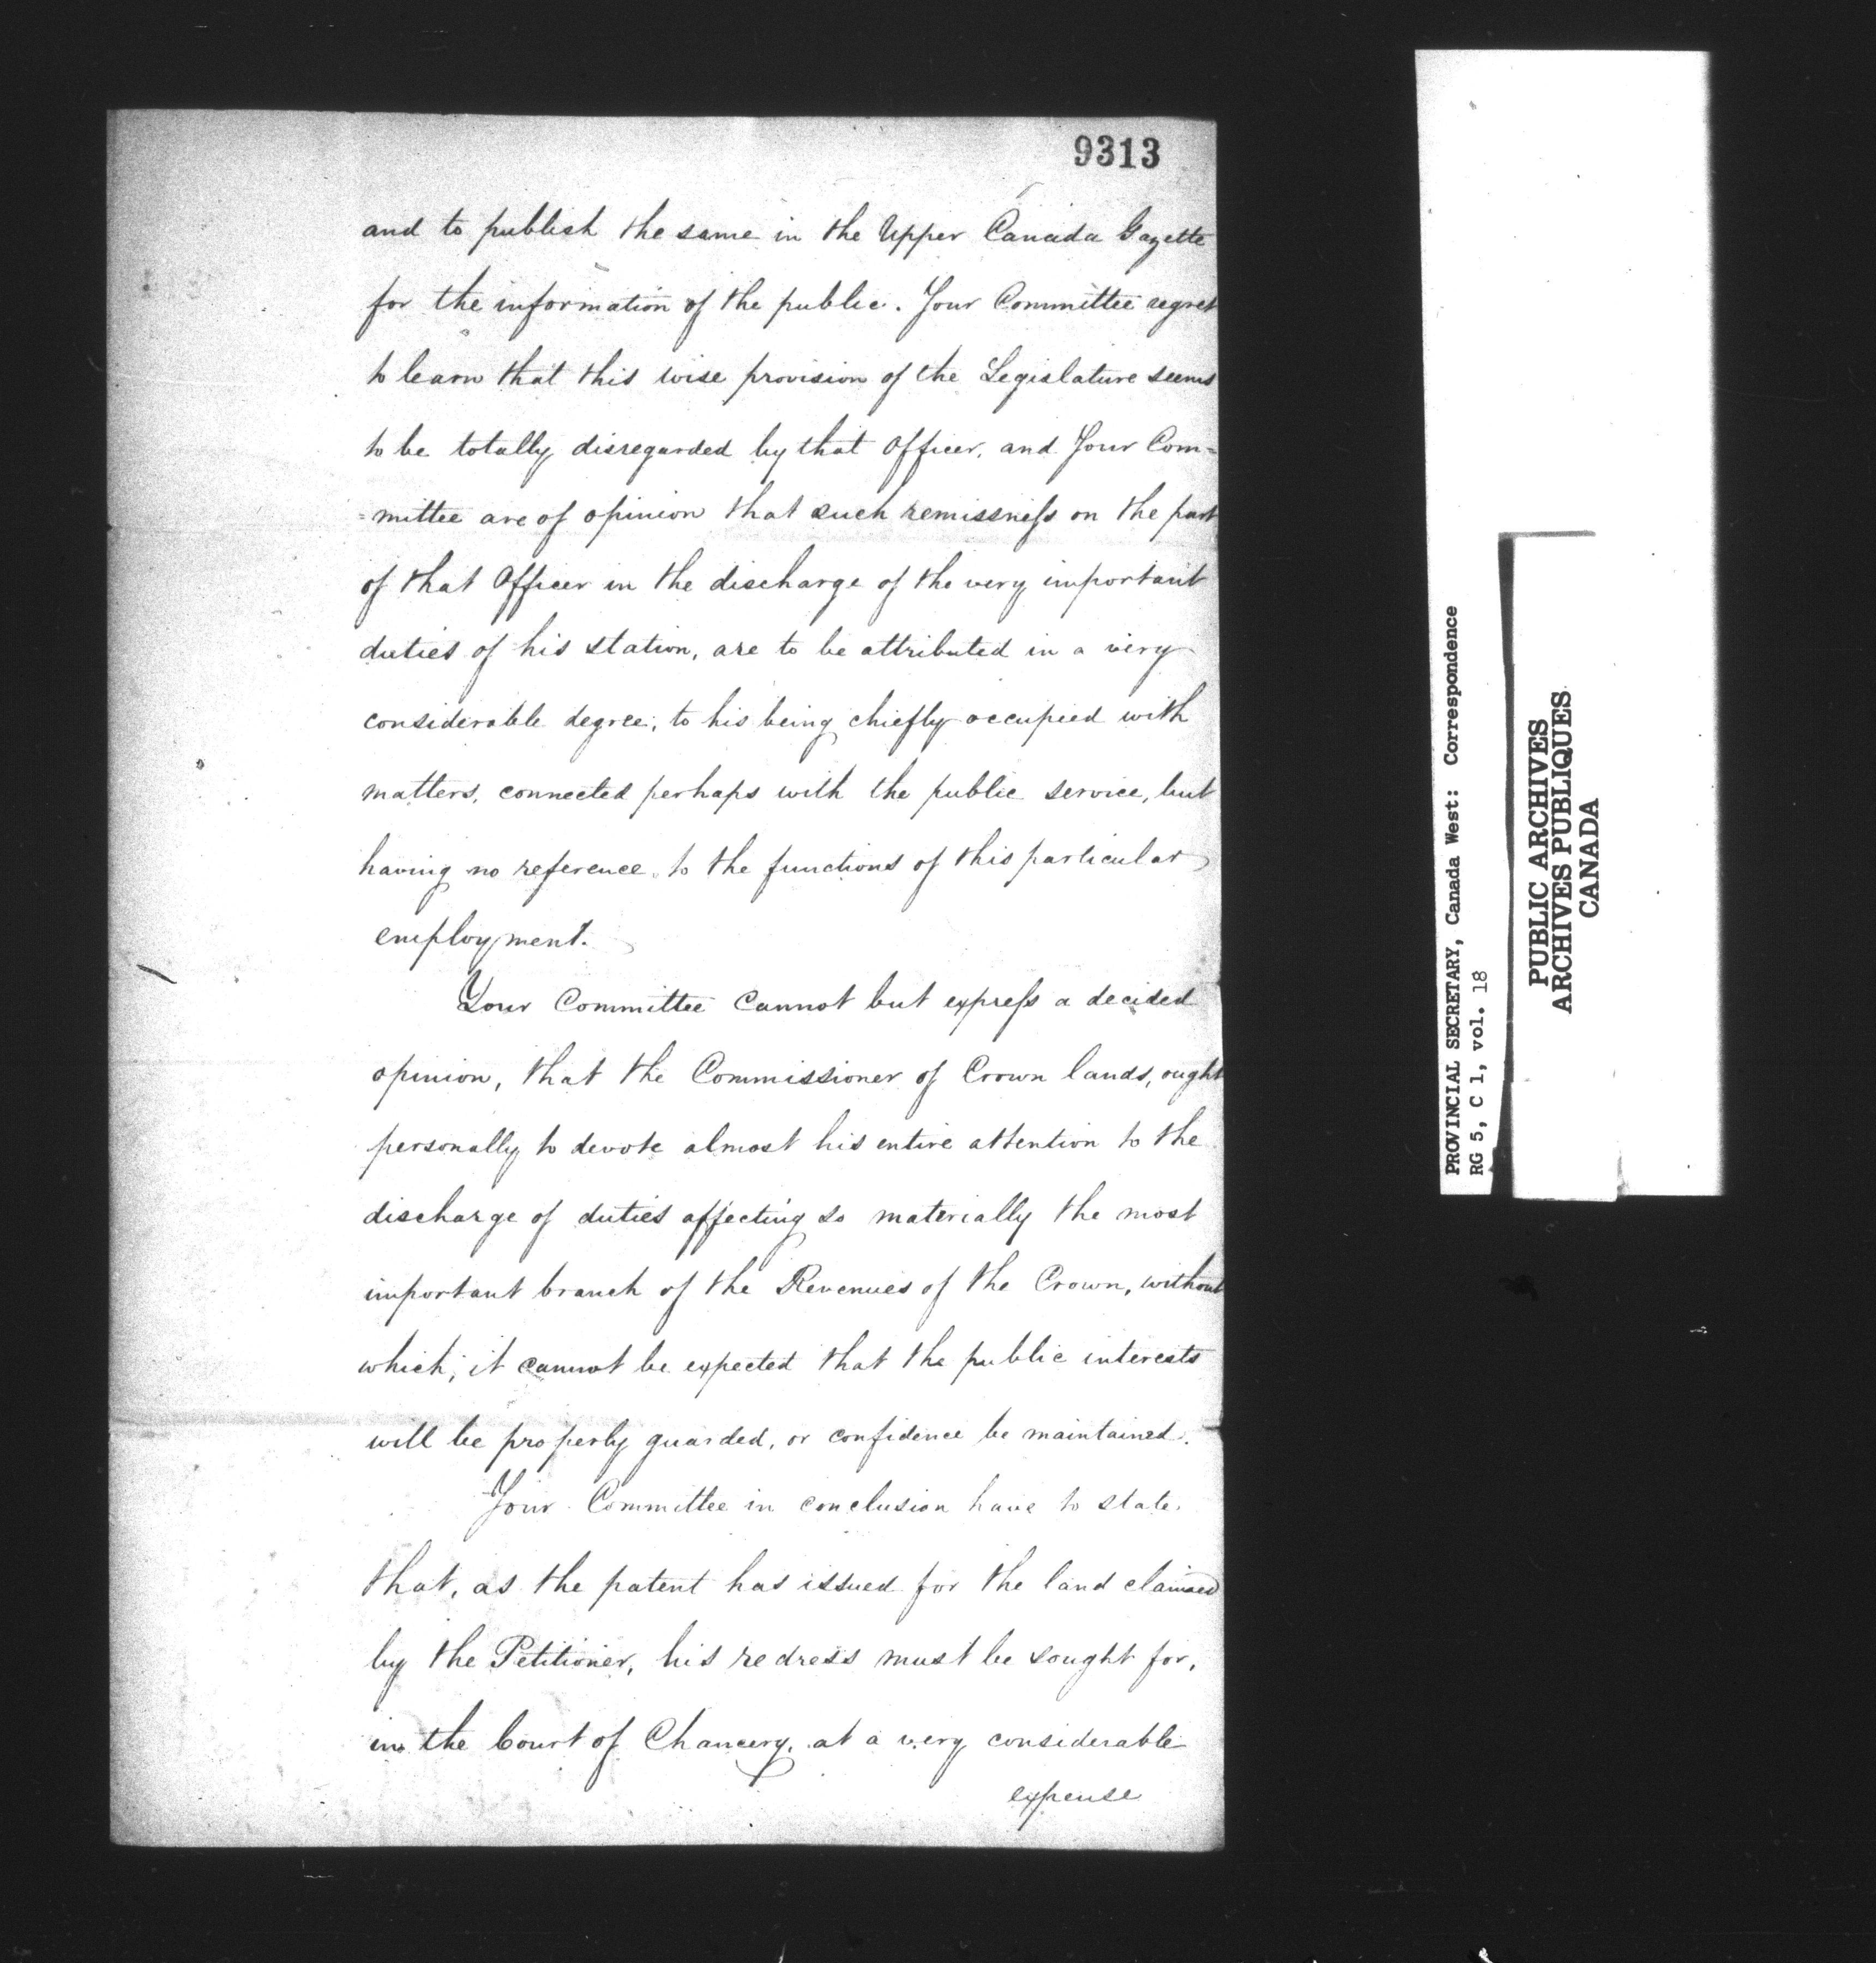 9313
and to publish the same in the Upper Canada Gazette
for the information of the public. Your Committee regret
to learn that this wise provision of the Legislature seems
to be totally disregarded by that Officer, and Your Com=
=mittee are of opinion that such remissness on the part
of that Officer in the discharge of the very important
duties of his station, are to be attributed in a very
considerable degree, to his being chiefly occupied with
matters, connected perhaps with the public service, but
having no reference to the functions of this particular
employment.
Your Committee cannot but express a decided
opinion, that the Commissioner of Crown lands, ought
personally to devote almost his entire attention to the
discharge of duties affecting so materially the most
important branch of the Revenues of the Crown, without
which, it cannot be expected that the public interests
will be properly guarded, or confidence be maintained.
Your Committee in conclusion have to state
that, as the patent has issued for the land claimed
by the Petitioner, his redress must be sought for,
in the Court of Chancery, at a very considerable
expense
PROVINCIAL SECRETARY, Canada West: Correspondence
RG 5, C 1, vol. 18
PUBLIC ARCHIVES
ARCHIVES PUBLIQUES
CANADA